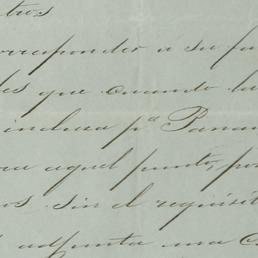 tros
corresponder á su fa
des que cuando la
incluza pª Pana
ra aquel punto, por
os sin el requisit
adjunta una C